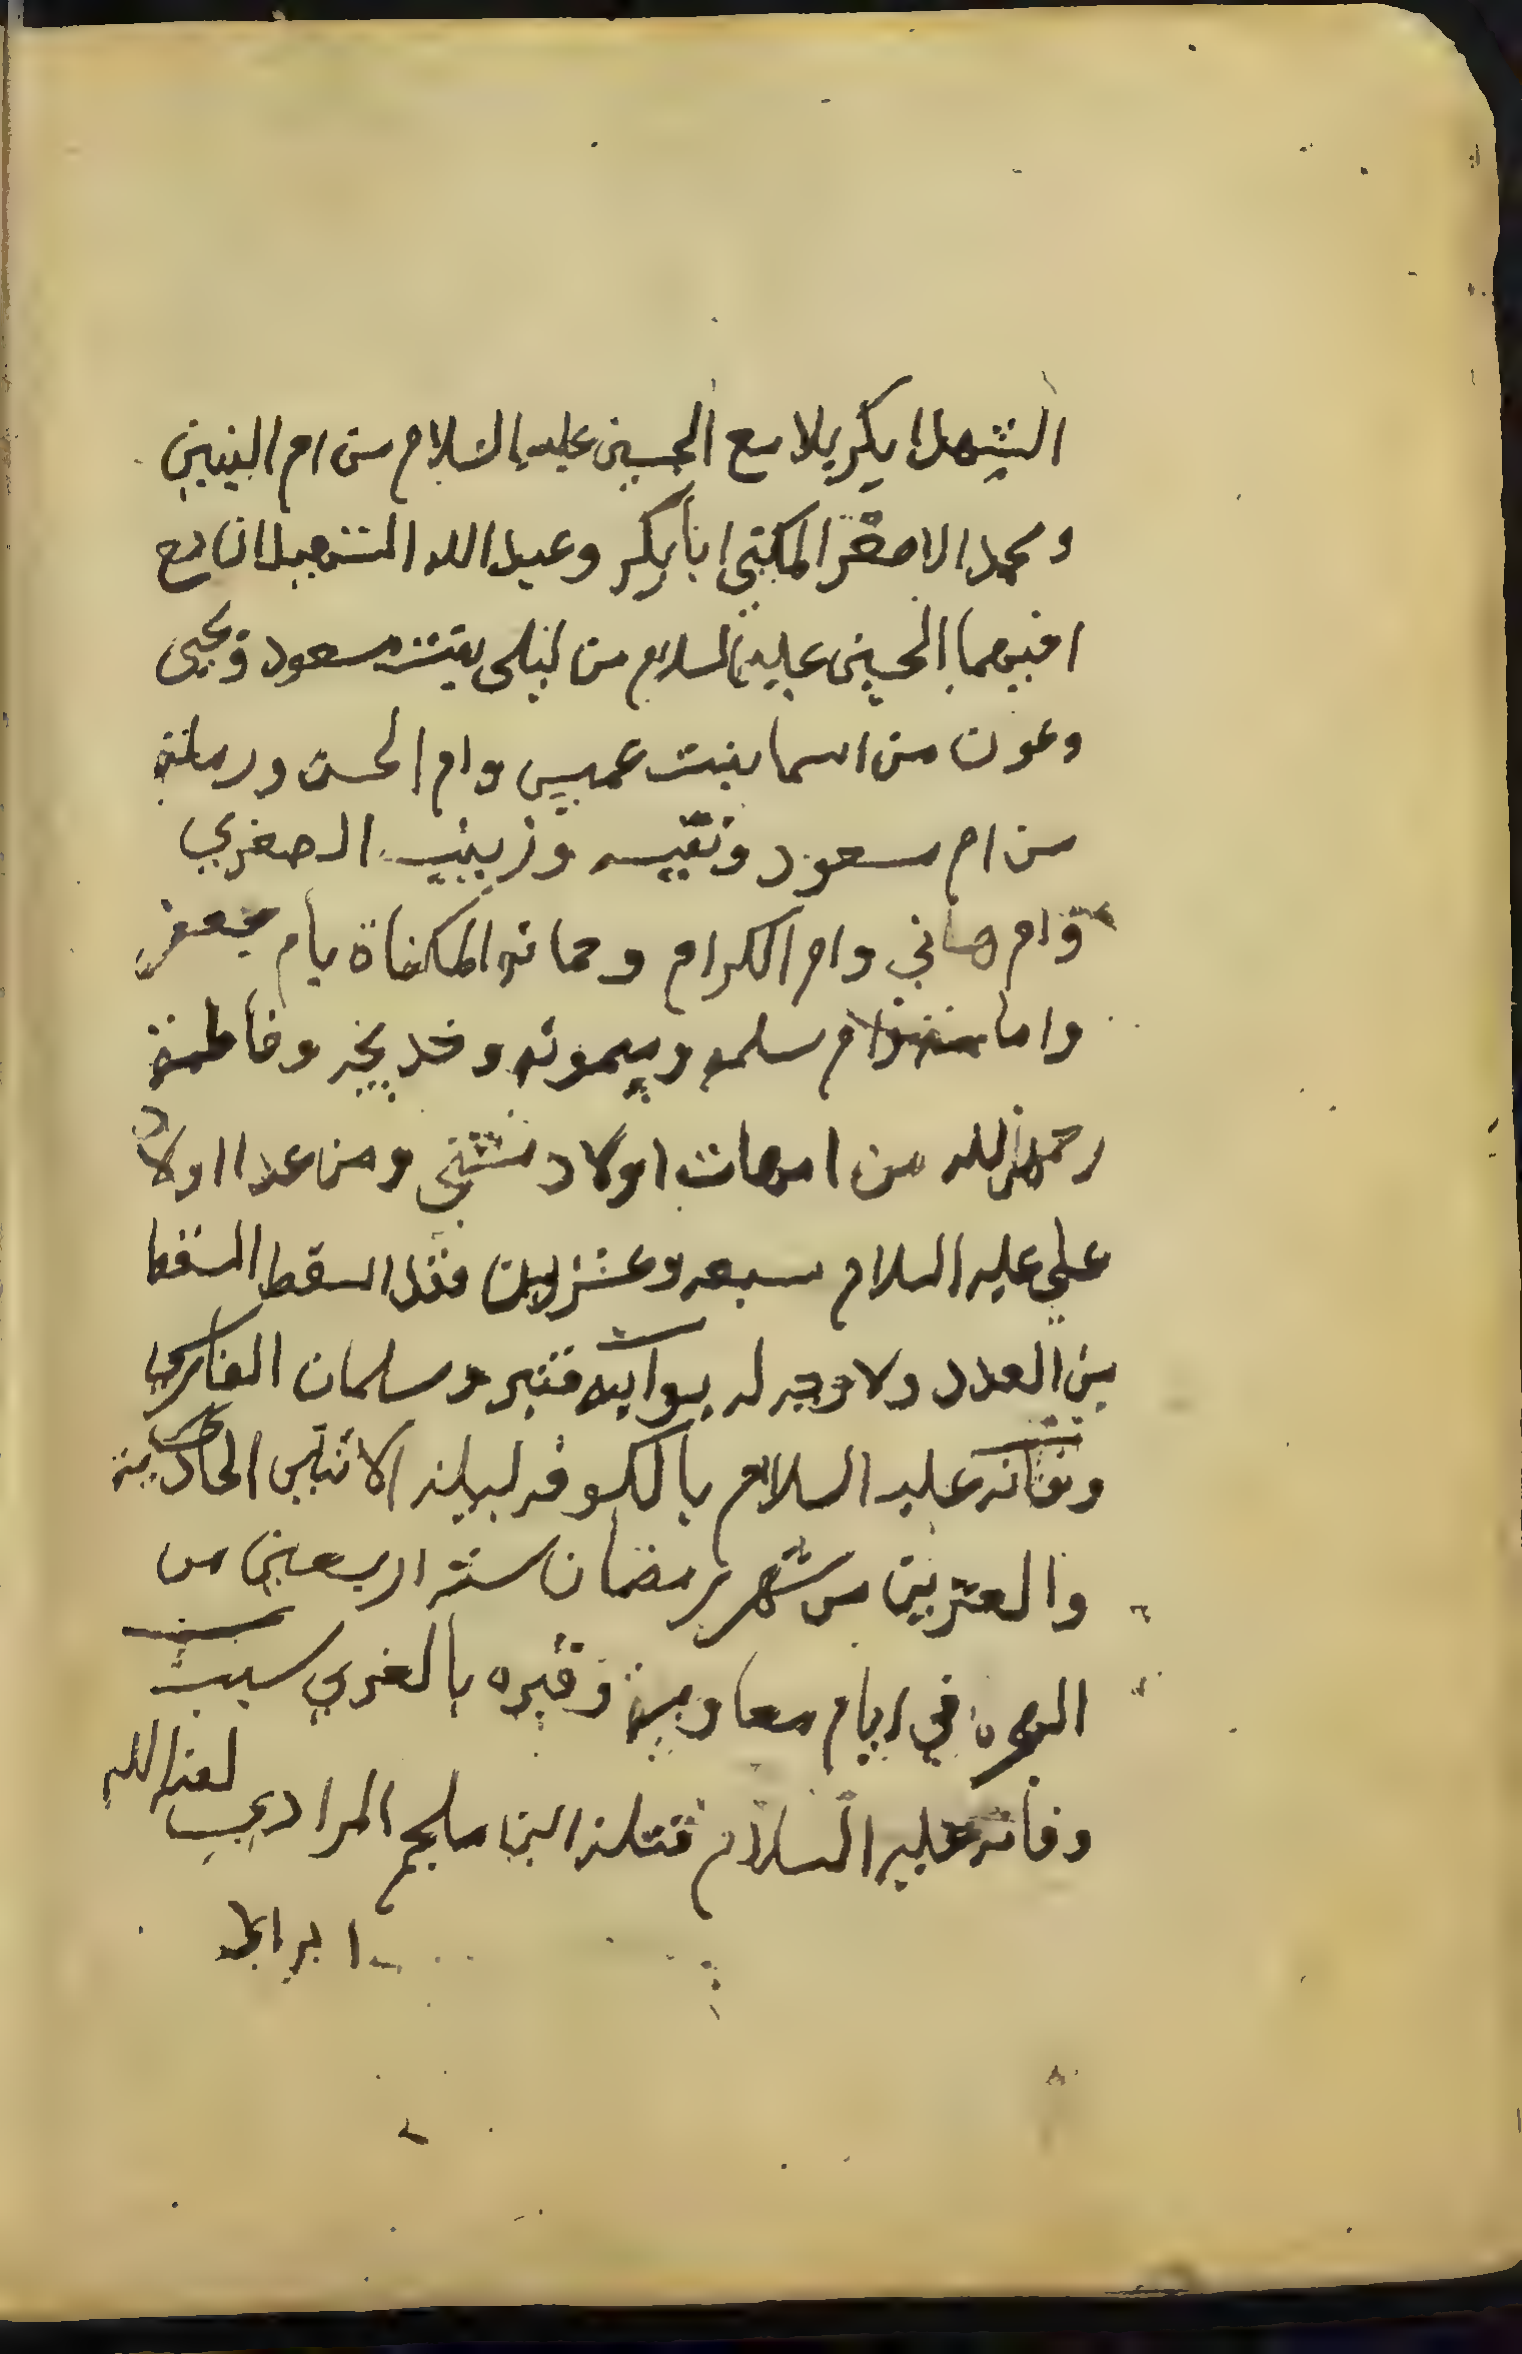 الشهدا بكربلا مع الحسين عليه السلام من ام البنين
ومحمد الاصغر المكنى ابابكر وعبد الله الشهيدان مع
اخيهما الحسين عليه السلام من ليلى بنت مسعود ويحيى
وعون من اسما بنت عميس وام الحسن ورملة
من ام مسعود ونفيسه وزينب الصغرى
وام هاني وام الكرام وجمانه المكناة بأم جعفر
واما وام سلمه وميمونه وخديجه وفاطمة
رحمهن الله من امهات اولاد شتى ومن عدا اولاد
علي عليه السلام سبعه وعشرين فقد اسقط السقط
من العدد ولا وجه له بوابه قنبر وسلمان الفارسي
وفاته عليه السلام بالكوفه ليلة الاثنين الحادية
والعشرين من شهر رمضان سنة اربعين من
الهجرة في ايام معاوية وقبره بالغري سبب
وفاته عليه السلام قتله ابن ملجم المرادي لعنه الله